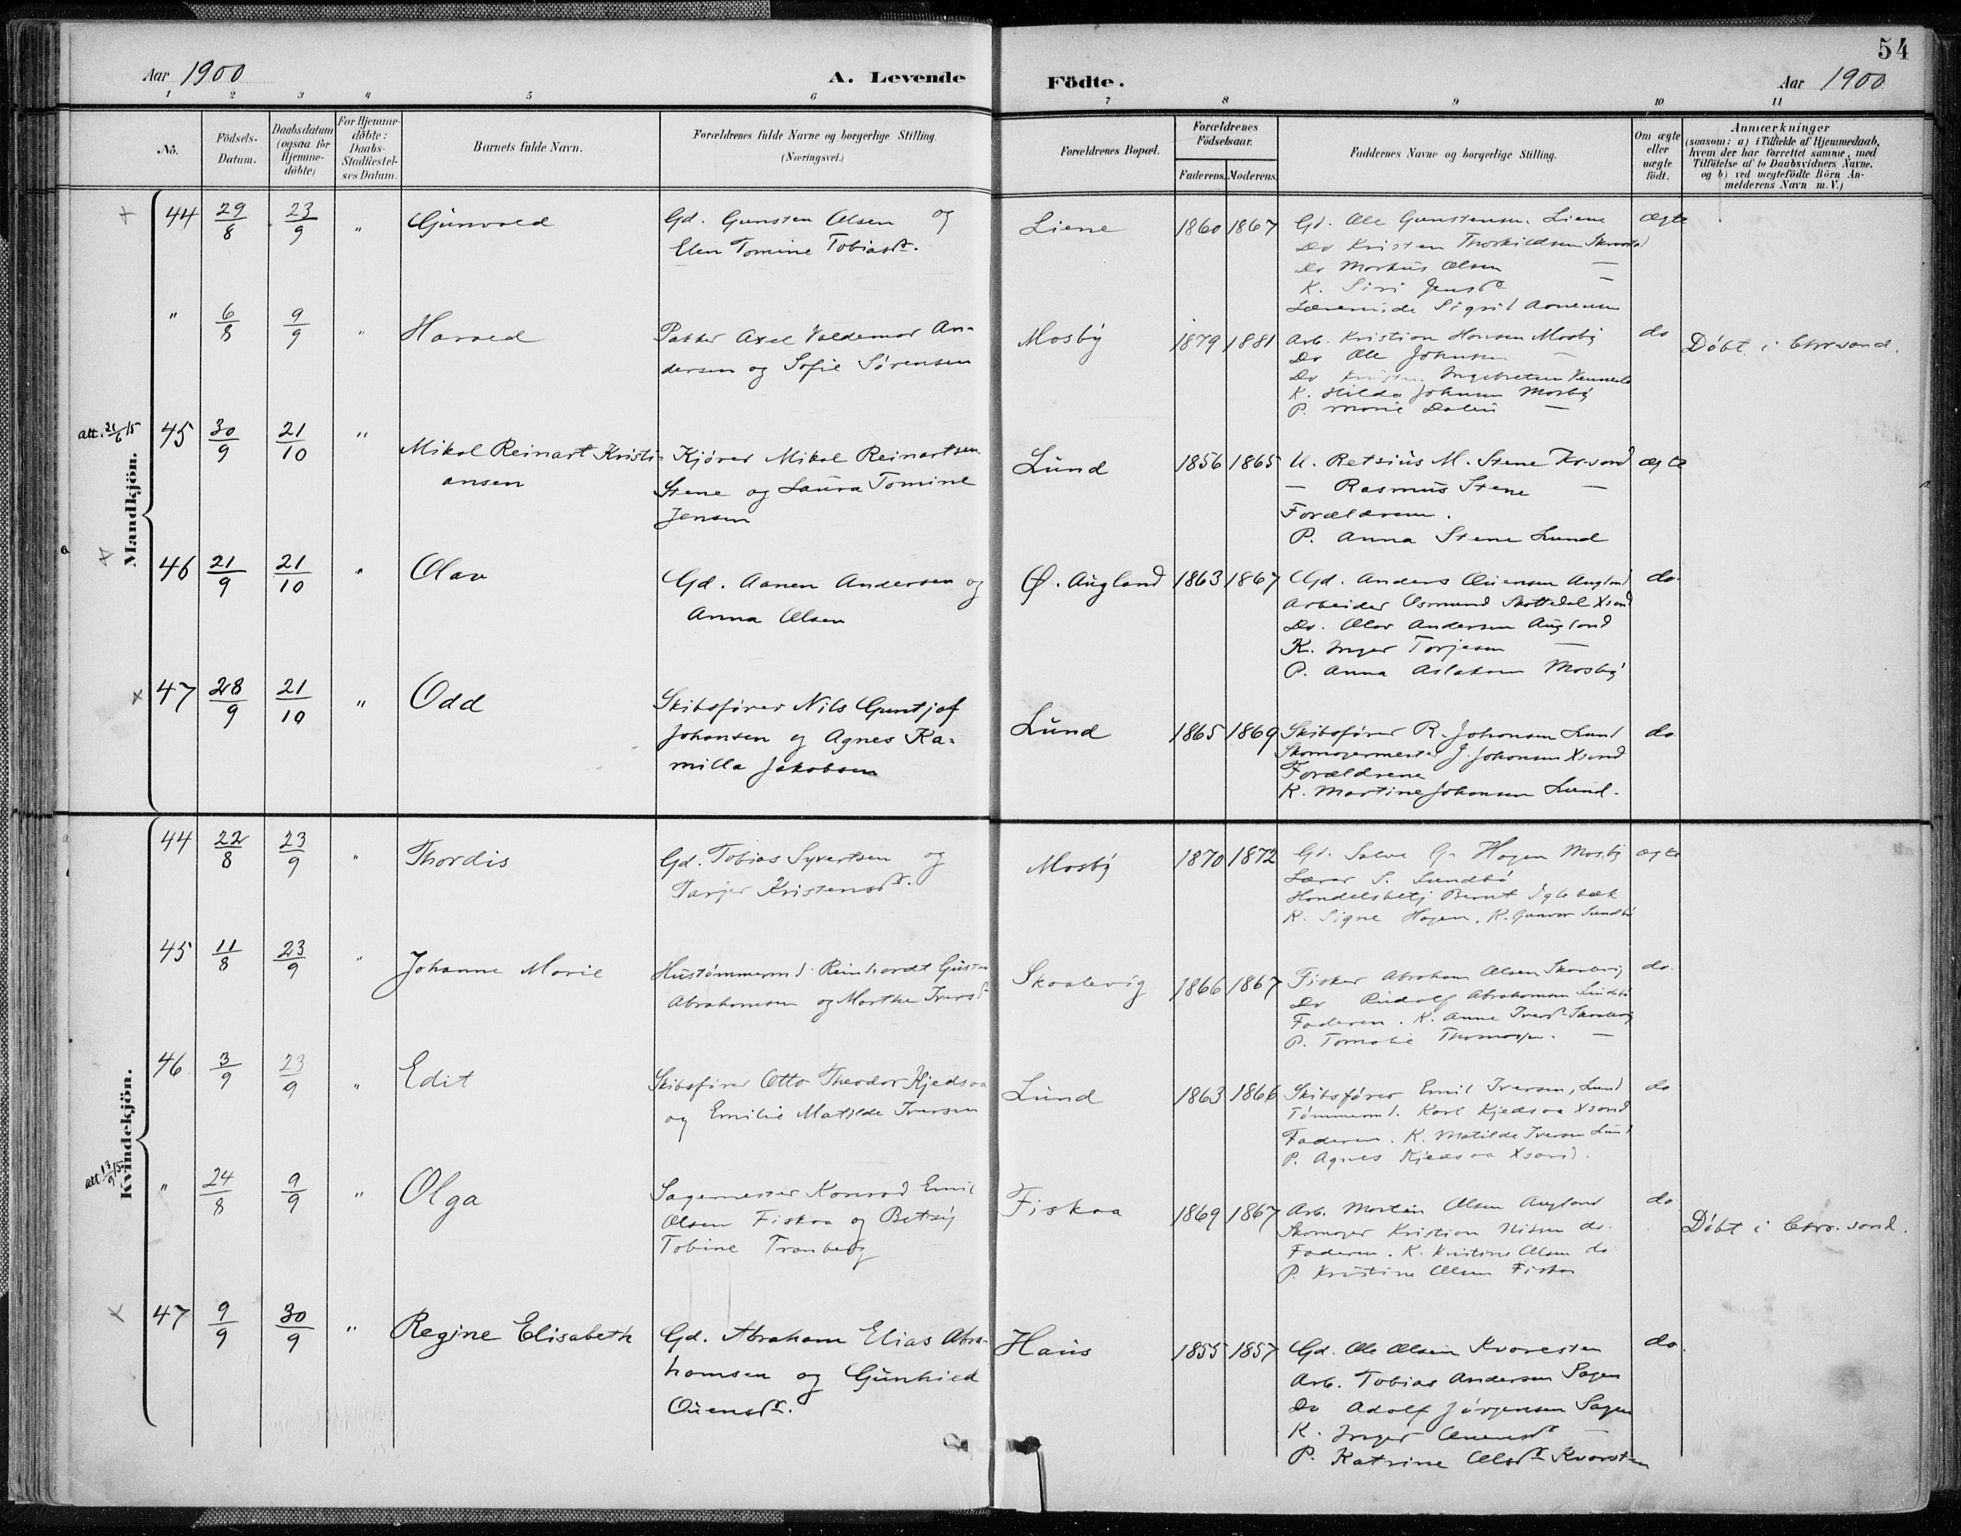 54
Aar 1900 A. Levende Födte. Aar 1900
1 2 3 4 5 6 7 8 9 10 11
Nô. Födsels-Datum. Daabsdatum (ogsaa for Hjemmedöbte) For Hjemmedöbte: Daabs-Stadfæstelses Datum. Barnets fulde Navn. Forældrenes fulde Navne og borgerlige Stilling. (Næringsvei.) Forældrenes Bopæl. Forældrenes Födselsaar. Faderens. Moderens. Faddernes Navne og borgerlige Stilling. Om ægte eller uægte födt. Anmærkninger (saasom: a) i Tilfælde af Hjemmedaab, hvem der har forrettet samme, med Tilföielse af to Daabsvidners Navne, og b) ved uægtefödte Börn Anmelderens Navn m. V.)
Mandkjön.
44 29/8 23/9 " Gunvald Gd. Gunsten Olsen og Liene 1860 1867 Gd. Ole Gunstensen Liene ægte
Elen Tomine Tobiasdr. Do Kristen Thorkildsen
Do Markus Olsen —
K. Siri Jensdr —
Sigrid Aanensen
" 6/8 9/9 " Harald Pakker Axel Valdemar An- Mosby 1879 1881 Arb. Kristian Hansen Mosby do Döbt i Chrsand.
dersen og Sofie Sørensen Do Ole Johnsen —
Do Kristen Ingebretsen Vennesla
K. Hilda Johnsen Mosby
P. Marie Dalen —
att. 21/6 15 45 30/9 21/10 " Mikal Reinart Kristi- Kjører Mikal Reinartsen Lund 1856 1865 U. Retsius M. Stene Kr.sand ægte
ansen Stene og Laura Tomine — Rasmus Stene —
Jensen Forældrene.
P. Anna Stene Lund
46 21/9 21/10 " Olav Gd. Aanen Andersen og Ø. Augland 1863 1867 Gd. Anders Auensen Augland do
Anna Olsen Arbeider Osmund Skottedal Xsand
Do. Olav Andersen Augland
K. Inger Torjesen —
P. Anna Aslaksen Mosby
47 28/9 21/10 " Odd Skibsfører Nils Guntjof Lund 1865 1869 Skibsfører R. Johansen Lund do
Johansen og Agnes Ka- Skomagermester J. Johansen Xsand
milla Jakobsen Forældrene
K. Martine Johansen Lund.
Kvindekjön.
44 22/8 23/9 " Thordis Gd. Tobias Syvertsen og Mosby 1870 1872 Gd. Salve G. Hagen Mosby ægte
Tarjer Kristensdr. Lærer S. Sundbö
Handelsbetj Bernt Iglebæk
K. Signe Hagen, K. Gunvor Sundbö
45 11/8 23/9 " Johanne Marie Hustømmermd. Reinhardt Gustav Skaalevig 1866 1867 Fisker Abraham Olsen Skaalevig do.
Abrahamsen og Marthe Iversdr Do Rudolf Abrahamsen
Faderen. K. Anne Iversdr Skaalevig
P. Tomalie Thomassen. —
46 3/9 23/9 " Edit Skibsfører Otto Theodor Kjedsaa Lund 1863 1866 Skibsfører Emil Iversen, Lund do
og Emilie Matilde Iversen Tømmermd. Karl Kjedsaa Xsand
Faderen. K. Matilde Iversen Lund
P. Agnes Kjedsaa Xsand.
att. 13/9 15 " 24/8 9/9 " Olga Sagemester Konrad Emil Fiskaa 1869 1867 Arb. Martin Olsen Augland do Döbt i Chr.sand.
Olsen Fiskaa og Betsy Skomager Kristian Nilsen do.
Tobine Tranberg Faderen. K. Kristine Olsen do
P. Kristine Olsen Fiskaa
47 9/9 30/9 " Regine Elisabeth Gd. Abraham Elias Abra- Haus 1855 1857 Gd. Ole Olsen Kvarsten do.
hamsen og Gunhild Arb. Tobias Andersen Sagen
Auensdr. Do Adolf Jørgensen Sagen
K. Inger Auensdr —
P. Katrine Olsdr Kvarsten